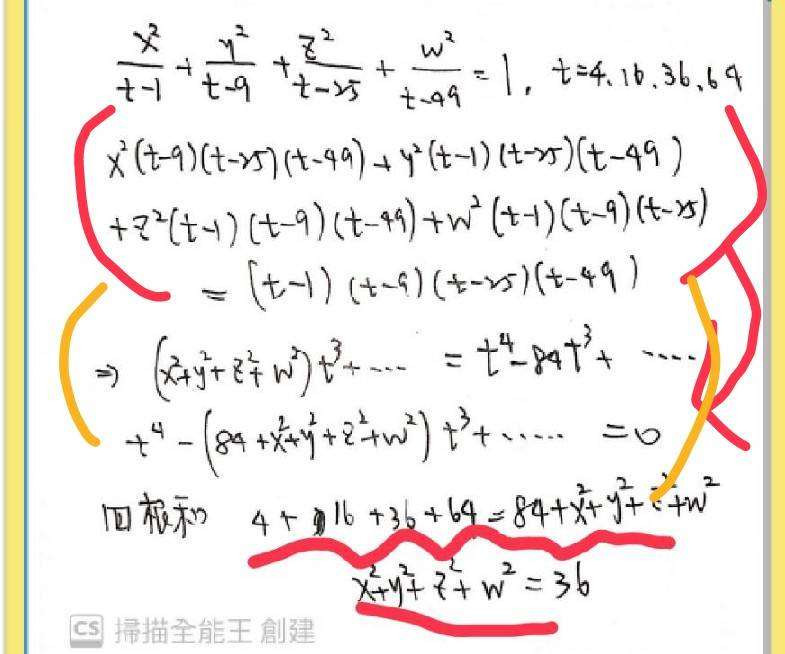 x²/(t-1) + y²/(t-9) + z²/(t-25) + w²/(t-49) = 1, t=4.16.36.64
x²(t-9)(t-25)(t-49)+y²(t-1)(t-25)(t-49)
+z²(t-1)(t-9)(t-49)+w²(t-1)(t-9)(t-25)
=(t-1)(t-9)(t-25)(t-49)
⇒ (x²+y²+z²+w²)t³+... = t⁴-84t³+ ....
t⁴-(84+x²+y²+z²+w²)t³+...... =0
四根和 4+16+36+64=84+x²+y²+z²+w²
x²+y²+z²+w²=36
CS 掃描全能王 創建